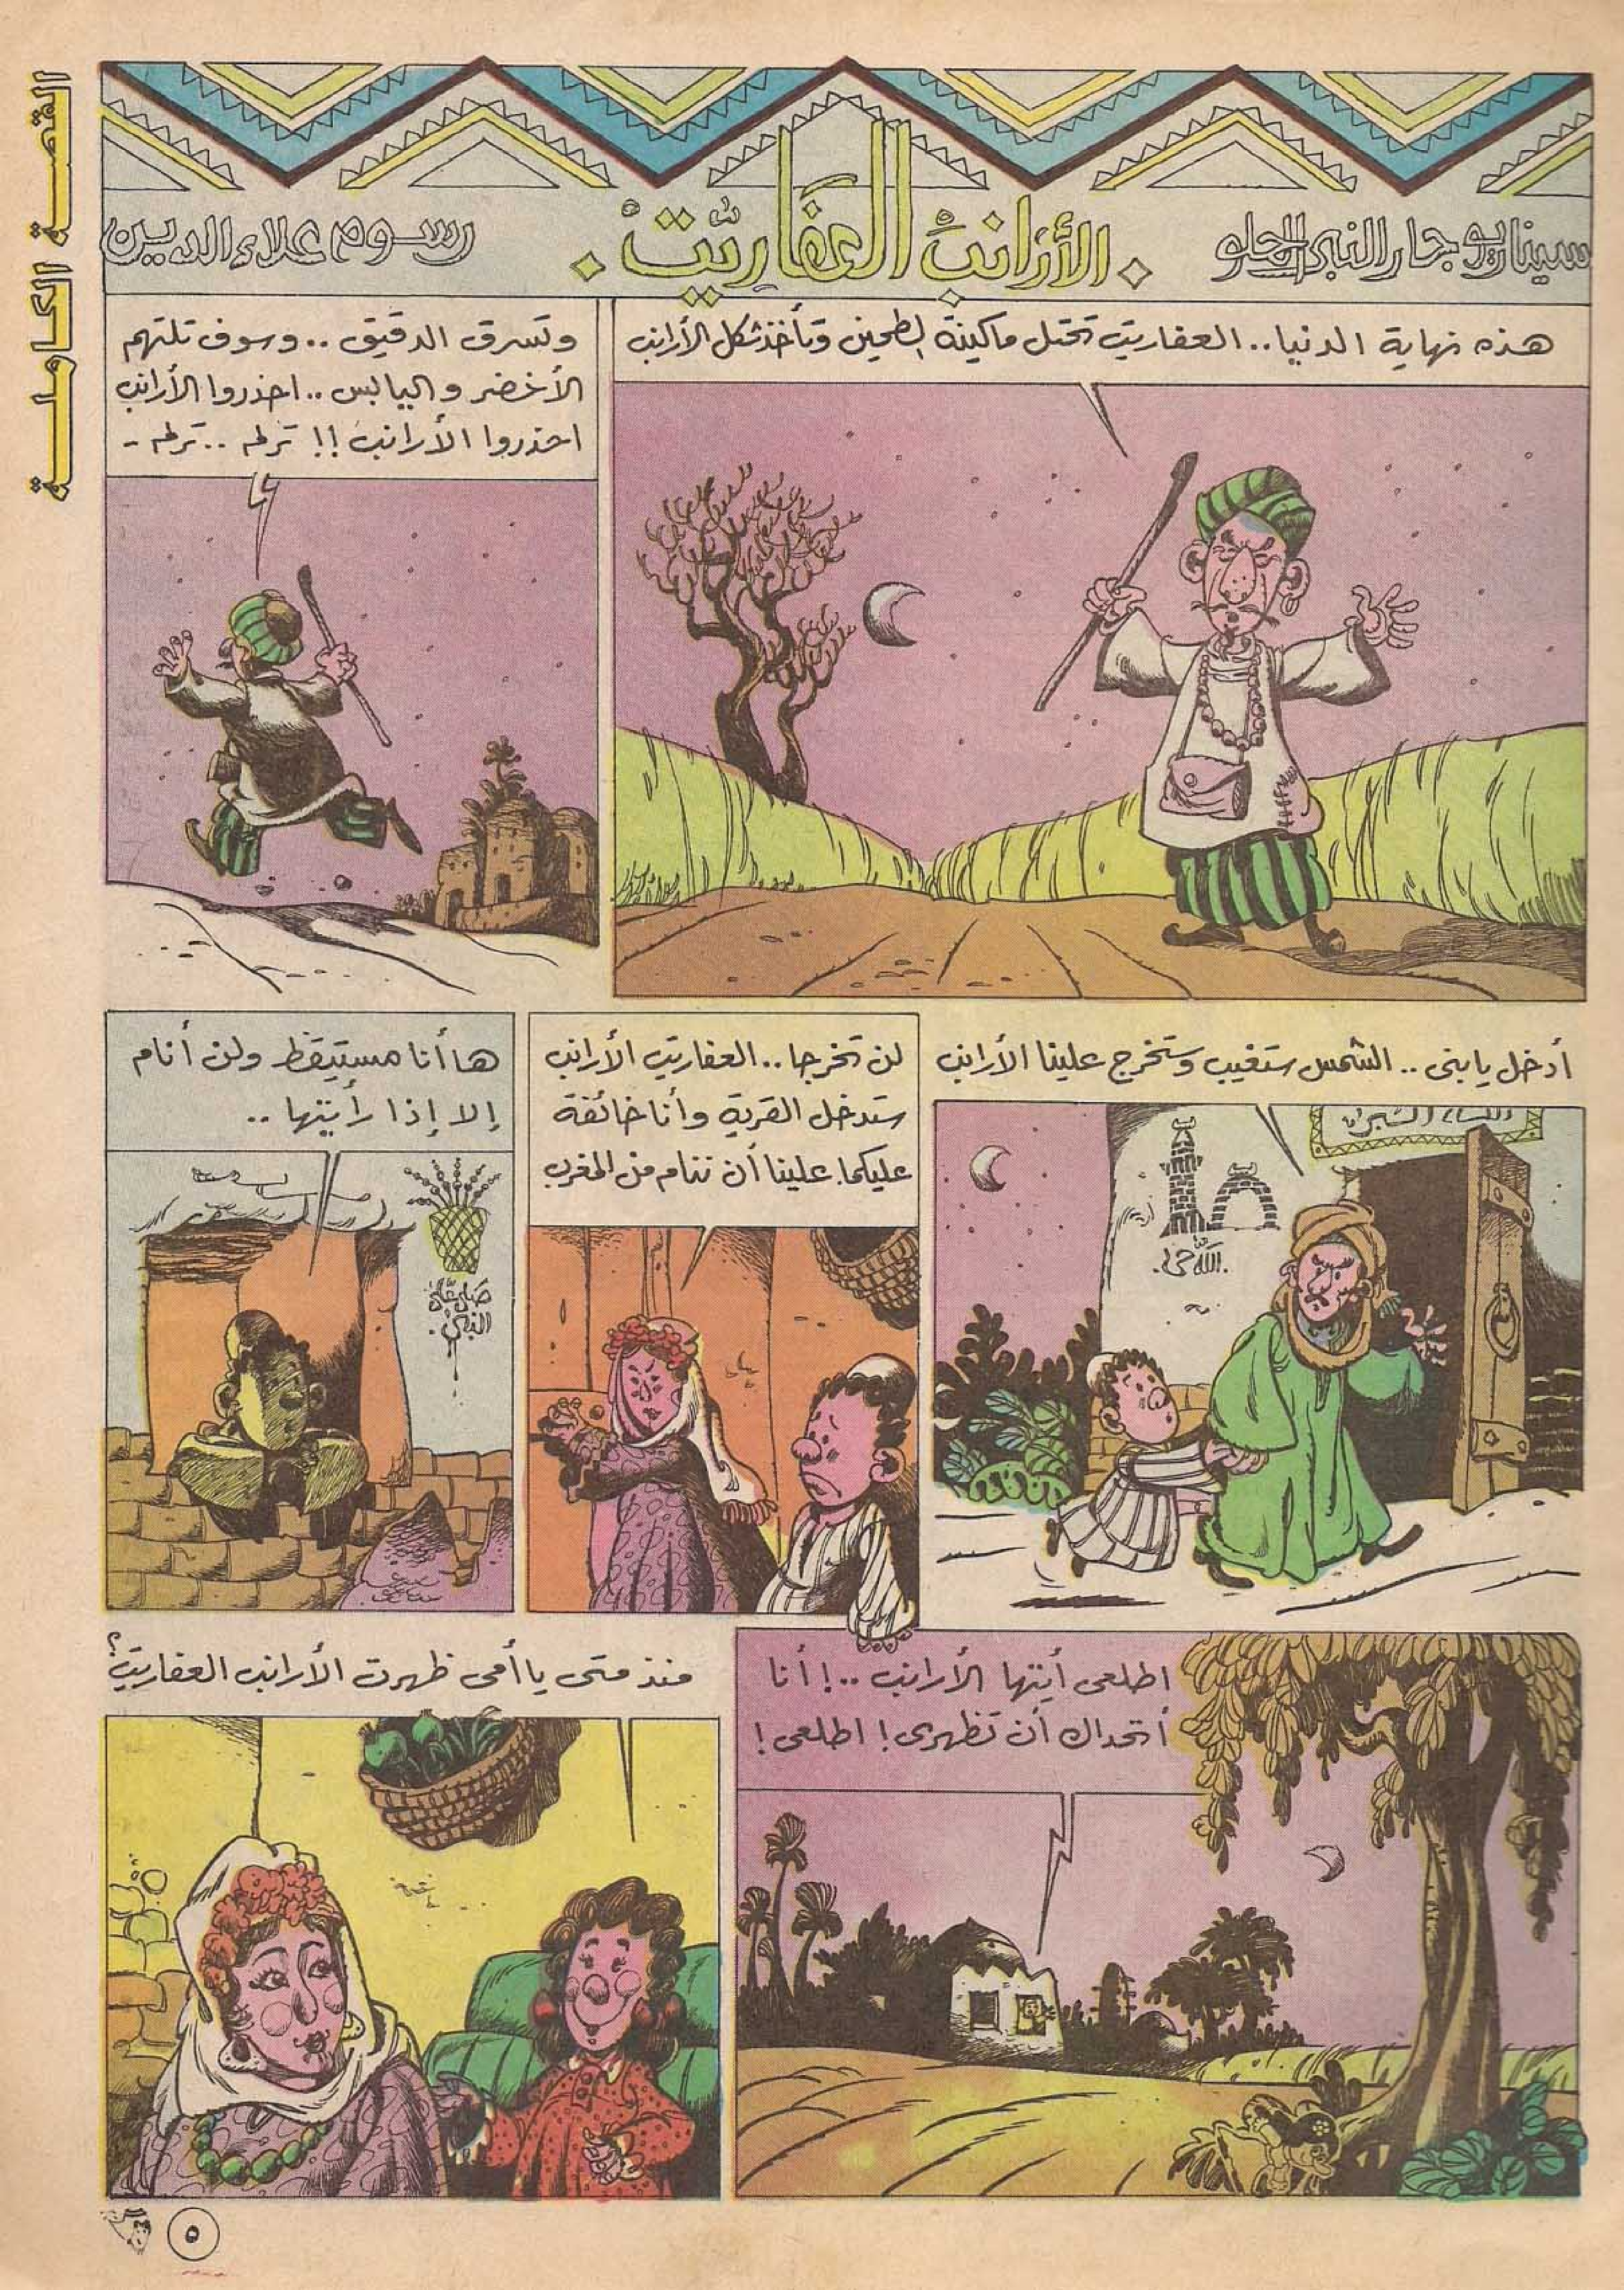 القصة الكاملة
سيناريو جار النبى الحلو
الأرانب العفاريت
رسوم علاء الدين
هذه نهاية الدنيا.. العفاريت تحتل ماكينة الطحين وتأخذ شكل الأرانب
وتسرق الدقيق .. وسوف تلتهم
الأخضر واليابس .. احذروا الأرانب
احذروا الأرانب !! ترلم .. ترلم -
أدخل يا بنى .. الشمس ستغيب وستخرج علينا الأرانب
الله حى
لن تخرجا .. العفاريت الأرانب
ستدخل القرية وأنا خائفة
عليكما. علينا أن ننام من المغرب
ها أنا مستيقظ ولن أنام
إلا إذا رأيتها ..
صلى على
النبى
اطلعى أيتها الأرانب ..! أنا
أتحداك أن تظهرى! اطلعى!
منذ متى يا أمى ظهرت الأرانب العفاريت؟
٥